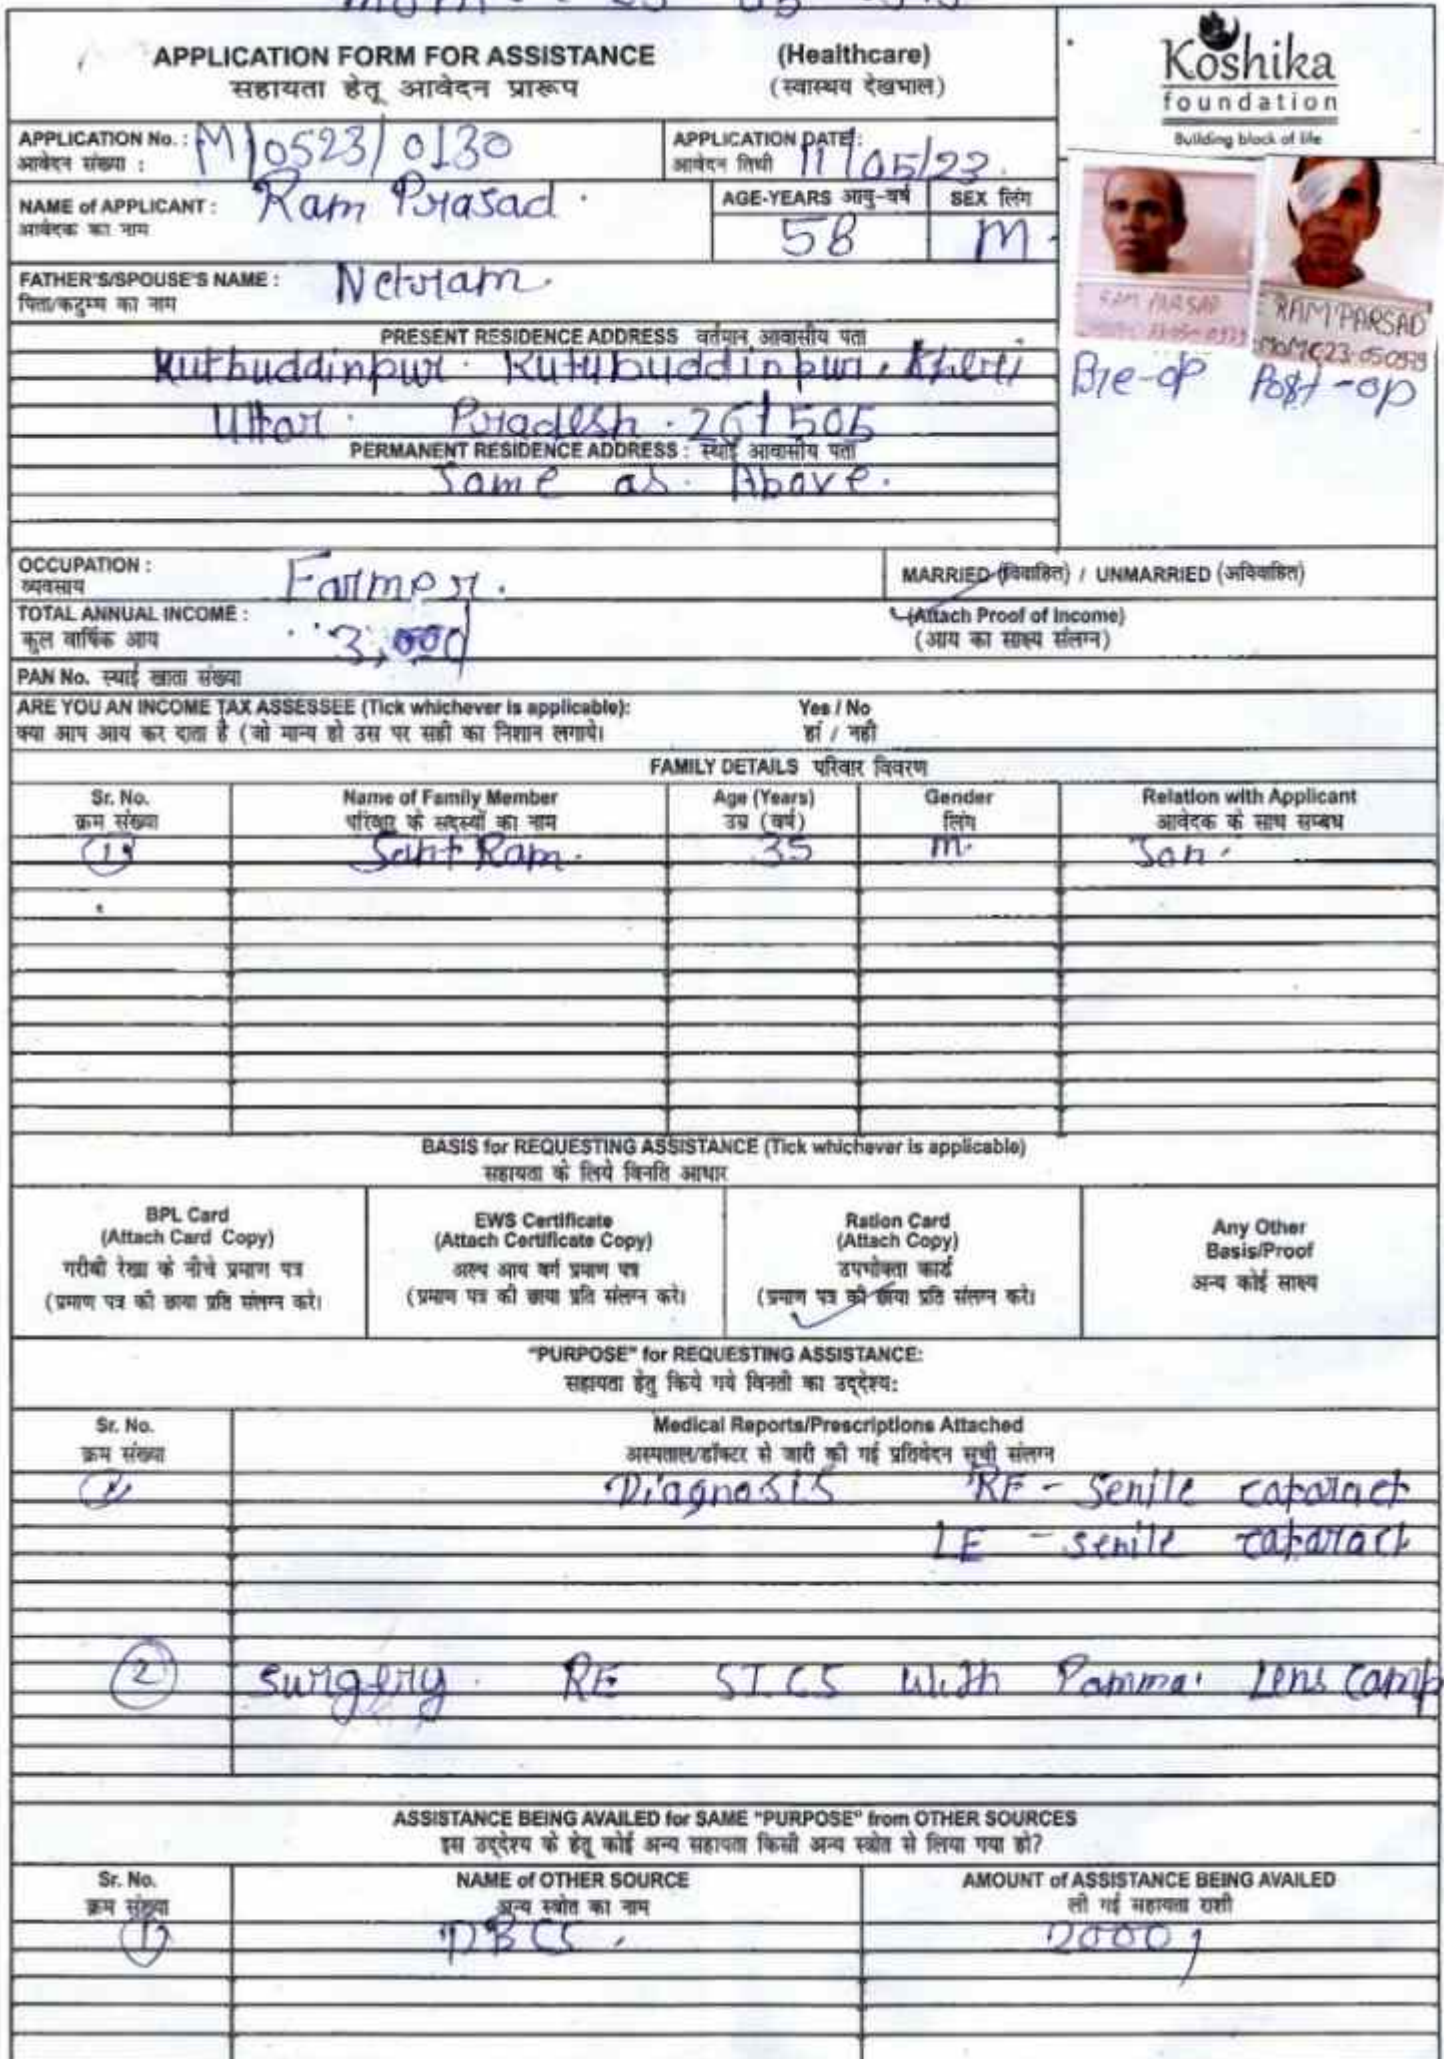 APPLICATION FORM FOR ASSISTANCE (Healthcare)
सहायता हेतू आवेदन प्रारूप (स्वास्थय देखभाल)
Koshika
foundation
Building block of life
APPLICATION No. : M/0523/0130
आवेदन संख्या :
APPLICATION DATE: 11/05/23
आवेदन तिथी
NAME of APPLICANT : Ram Prasad
आवेदक का नाम
AGE-YEARS आयु-वर्ष 58
SEX लिंग M
FATHER'S/SPOUSE'S NAME : Netram
पिता/कटुम्ब का नाम
RAM PARSAD
RAM PARSAD
Pre-op Post-op
PRESENT RESIDENCE ADDRESS वर्तमान आवासीय पता
Kutbuddinpur Kutubuddinpur, Kheri
Uttar Pradesh 261505
PERMANENT RESIDENCE ADDRESS : स्थाई आवासीय पता
Same as Above.
OCCUPATION : Farmer.
व्यवसाय
MARRIED (विवाहित) / UNMARRIED (अविवाहित)
TOTAL ANNUAL INCOME :
कुल वार्षिक आय
(Attach Proof of Income)
(आय का साक्ष्य संलग्न)
PAN No. स्थाई खाता संख्या
ARE YOU AN INCOME TAX ASSESSEE (Tick whichever is applicable): Yes / No
क्या आप आय कर दाता है (जो मान्य हो उस पर सही का निशान लगाये। हां / नही
FAMILY DETAILS परिवार विवरण
Sr. No. Name of Family Member Age (Years) Gender Relation with Applicant
क्रम संख्या परिवार के सदस्यों का नाम उम्र (वर्ष) लिंग आवेदक के साथ सम्बध
1 Sant Ram. 35 M. Son.
BASIS for REQUESTING ASSISTANCE (Tick whichever is applicable)
सहायता के लिये विनति आधार
BPL Card
(Attach Card Copy)
गरीबी रेखा के नीचे प्रमाण पत्र
(प्रमाण पत्र की छाया प्रति संलग्न करे।
EWS Certificate
(Attach Certificate Copy)
अल्प आय वर्ग प्रमाण पत्र
(प्रमाण पत्र की छाया प्रति संलग्न करे।
Ration Card
(Attach Copy)
उपभोक्ता कार्ड
(प्रमाण पत्र की छाया प्रति संलग्न करे।
Any Other
Basis/Proof
अन्य कोई साक्ष्य
"PURPOSE" for REQUESTING ASSISTANCE:
सहायता हेतु किये गये विनती का उद्देश्य:
Sr. No. Medical Reports/Prescriptions Attached
क्रम संख्या अस्पताल/डॉक्टर से जारी की गई प्रतिवेदन सूची संलग्न
Diagnosis RE - Senile cataract
LE - senile cataract
2 Surgery. RE SICS with Pamma Lens Camp
ASSISTANCE BEING AVAILED for SAME "PURPOSE" from OTHER SOURCES
इस उद्देश्य के हेतू कोई अन्य सहायता किसी अन्य स्त्रोत से लिया गया हो?
Sr. No. NAME of OTHER SOURCE AMOUNT of ASSISTANCE BEING AVAILED
क्रम संख्या अन्य स्त्रोत का नाम ली गई सहायता राशी
1 DBCS. 2000/